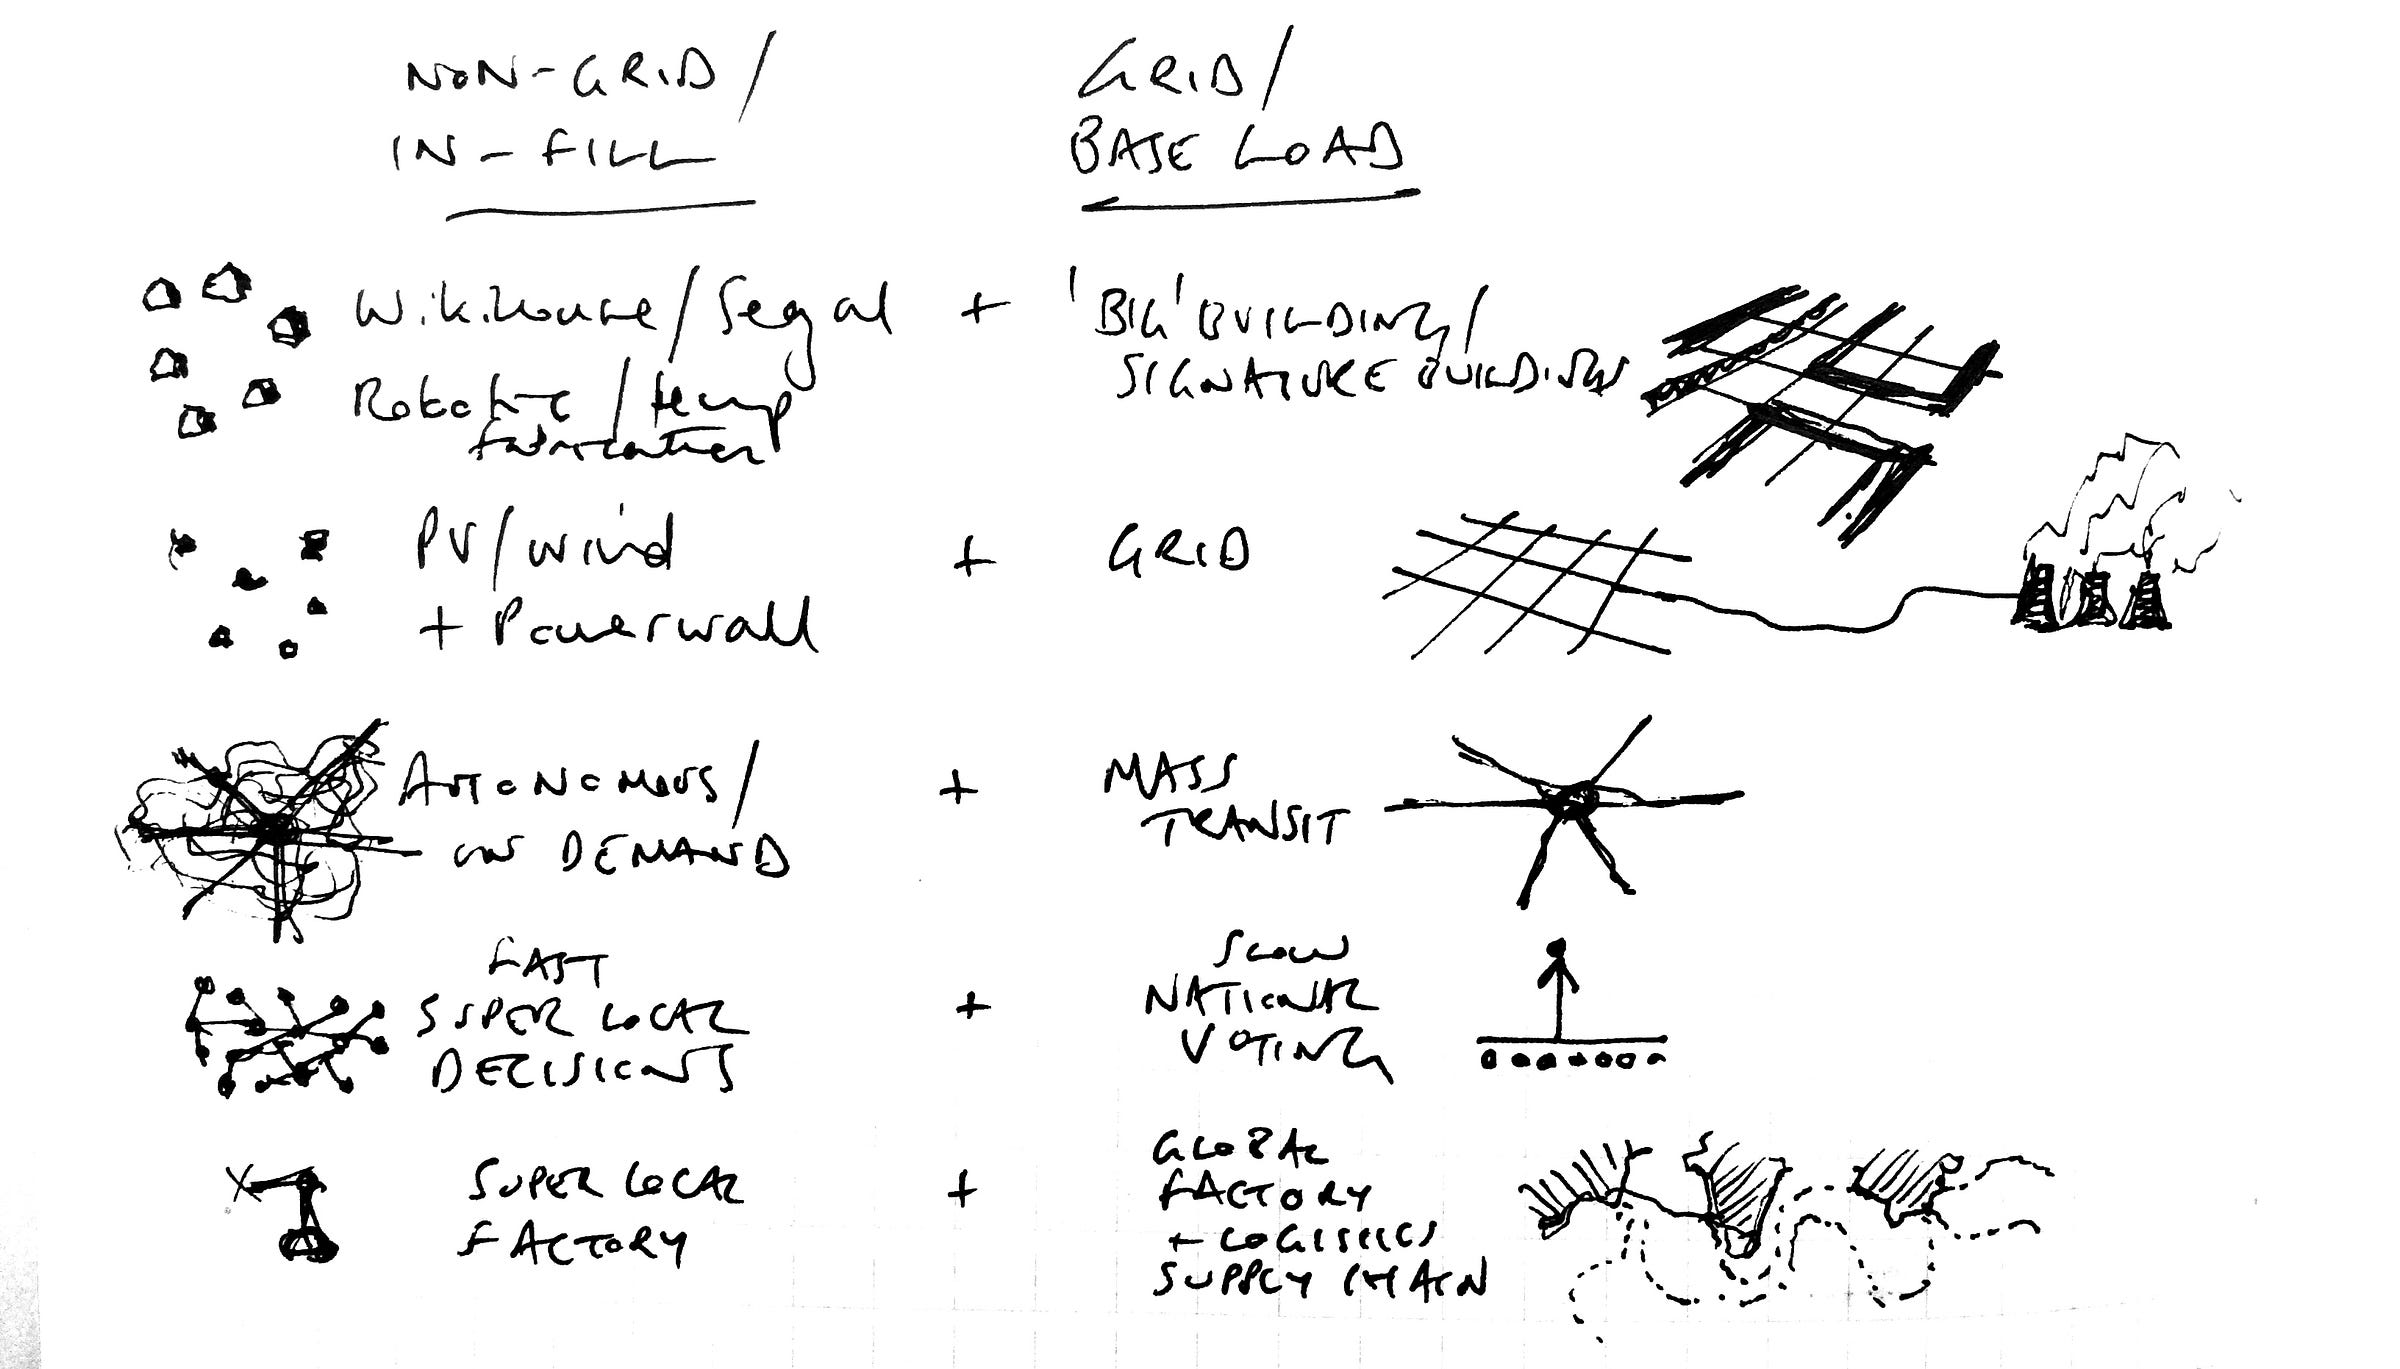 NON-GRID/
IN-FILL
GRID/
BASE LOAD
Wikihouse/Segal
Robotic/temp
fabrication
+
'BIG' BUILDING/
SIGNATURE BUILDINGS
PV/wind
+ Powerwall
+
GRID
AUTONOMOUS/
ON DEMAND
+
MASS
TRANSIT
FAST
SUPER LOCAL
DECISIONS
+
SLOW
NATIONAL
VOTING
SUPER LOCAL
FACTORY
+
GLOBAL
FACTORY
+ LOGISTICS
SUPPLY CHAIN